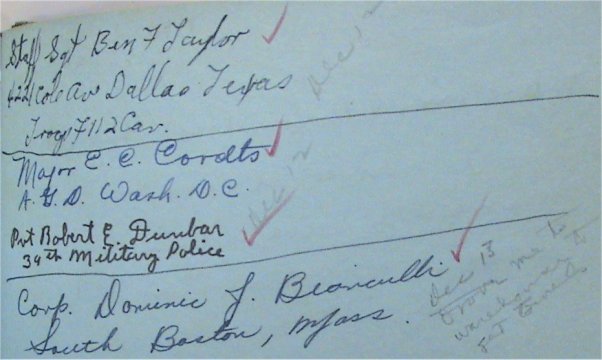 Staff Sgt Ben F Taylor
4221 Cole Av Dallas Texas
Dec 12
Troop F 112 Cav.
Major E. C. Cordts
A. G. D. Wash. D.C.
Dec 12
Pvt Robert E. Dunbar
34th Military Police
Corp. Dominic J. Bianculli
South Boston, Mass.
Dec 13
Drove me to
warehouse